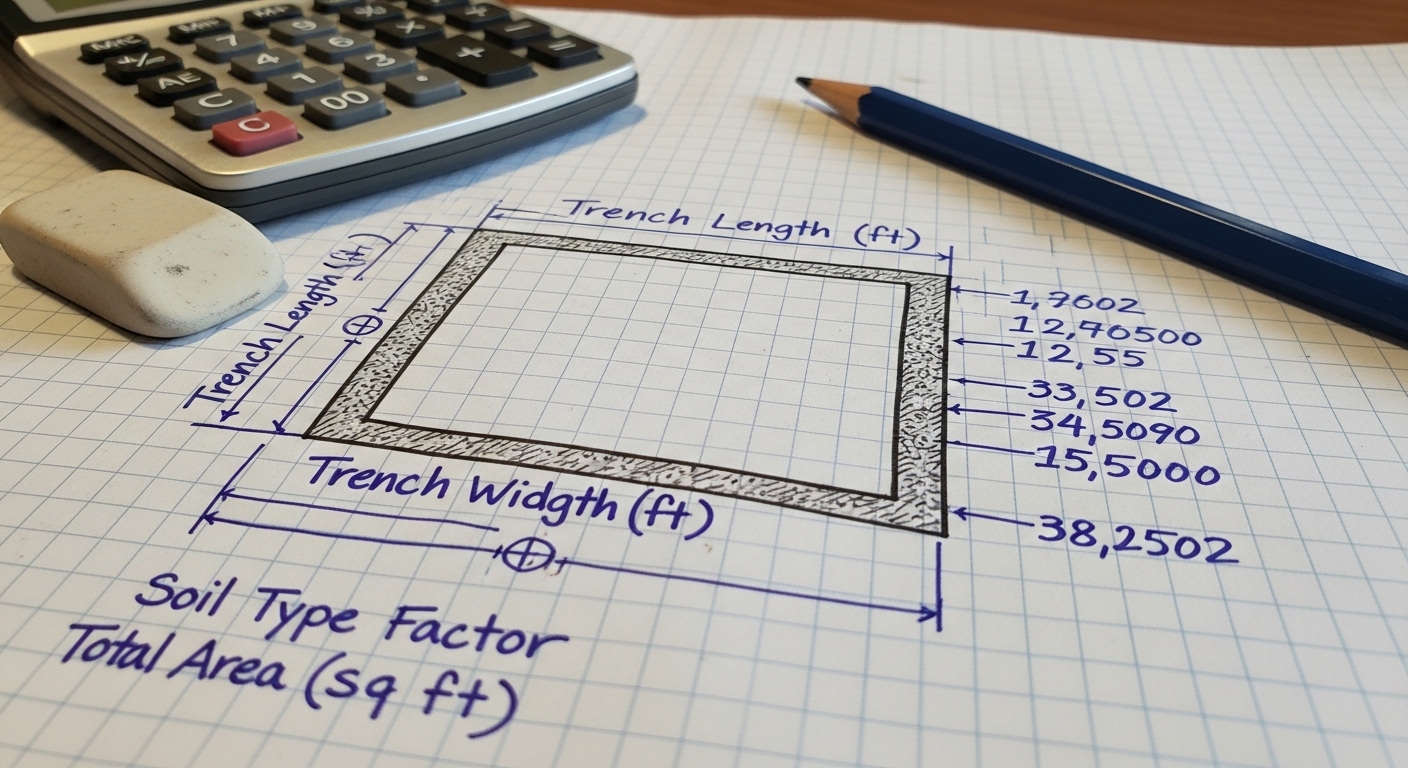 MRC
M+
M+
%
÷
+/-
7
9
×
−
AE
4
6
+
=
C
1
3
C
00
.
Trench Length (ft)
Trench Length
1,7602
12,70500
12,55
33,502
34,5090
15,5000
38,2502
Trench Widgth (ft)
Soil Type Factor
Total Area (sq ft)